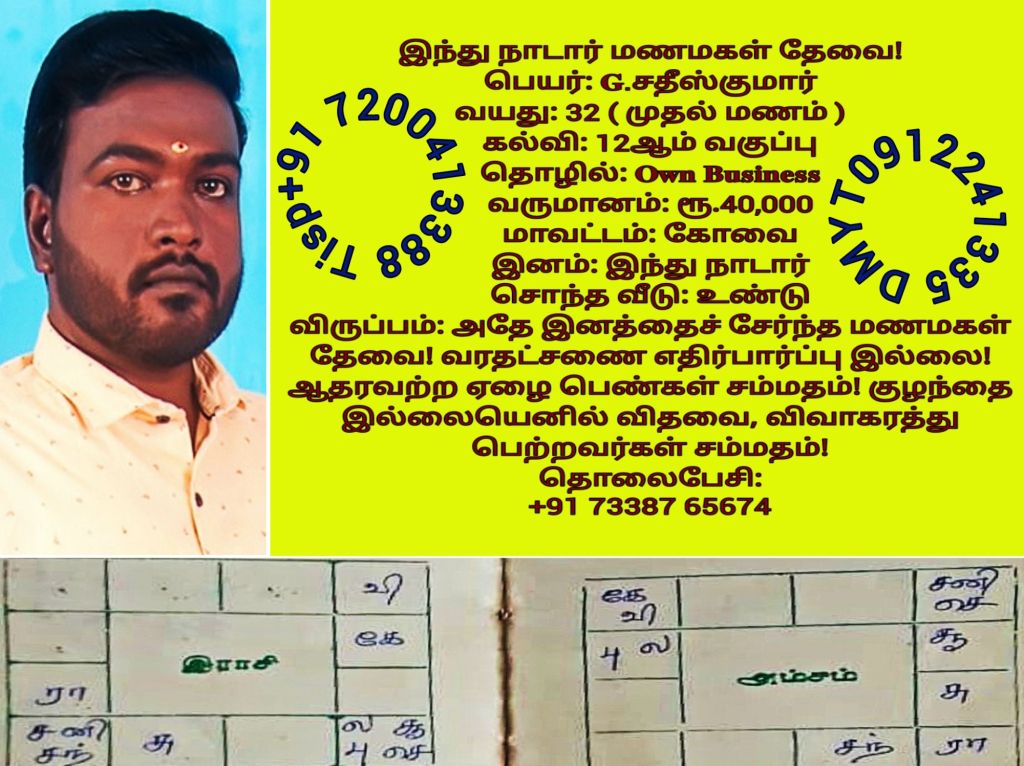 இந்து நாடார் மணமகள் தேவை!
பெயர்: G.சதீஸ்குமார்
வயது: 32 ( முதல் மணம் )
கல்வி: 12ஆம் வகுப்பு
தொழில்: Own Business
வருமானம்: ரூ.40,000
மாவட்டம்: கோவை
இனம்: இந்து நாடார்
சொந்த வீடு: உண்டு
விருப்பம்: அதே இனத்தைச் சேர்ந்த மணமகள்
தேவை! வரதட்சணை எதிர்பார்ப்பு இல்லை!
ஆதரவற்ற ஏழை பெண்கள் சம்மதம்! குழந்தை
இல்லையெனில் விதவை, விவாகரத்து
பெற்றவர்கள் சம்மதம்!
தொலைபேசி:
+91 73387 65674
Tisp+91 7200413388
DMYT0912241335
வி
கே
இராசி
ரா
சனி
சந்
சு
ல சூ
பு சை
கே
வி
சனி
சை
பு ல
சூ
அம்சம்
சு
சந்
ரா